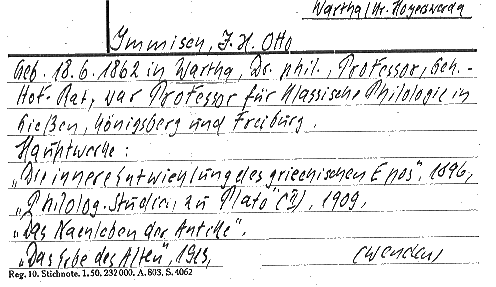 Wartha/Kr. Hoyerswerda
Immisch, J. H. Otto
Geb. 18.6.1862 in Wartha, Dr. phil., Professor, Geh.-
Hof-Rat, war Professor für Klassische Philologie in
Gießen, Königsberg und Freiburg.
Hauptwerke:
„Die innere Entwicklung des griechischen Epos", 1896,
„Philolog. Studien zu Plato" (I), 1909,
„Das Nachleben der Antike".
„Das Erbe des Alten", 1919,
(Wenden)
Reg. 10. Stichnote. 1. 50. 232000. A. 803. S. 4062